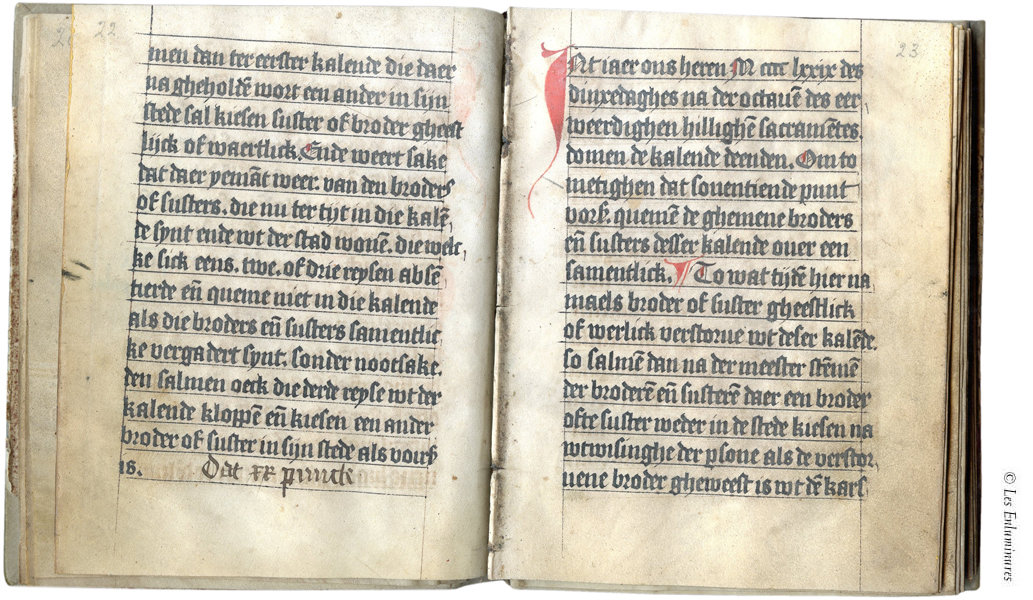 22
men dan ter eerster kalende die daer
na gheholdē wort een ander in sijn
stede sal kiesen suster of broder gheest
lijck of waertlick. Ende weert sake
dat daer yemāt weer. van den broders
of susters. die nu ter tijt in die kalē,
de synt ende wt der stad wonē. die welc,
ke sick eens. twe. of drie reysen absē
tierde eñ queme niet in die kalende
als die broders eñ susters samentlic
ke vergadert synt. sonder nootsake.
den salmen oeck die derde reyse wt der
kalende kloppē eñ kiesen een ander
broder of suster in sijn stede als vours
is. Dat xx punck
23
Int iaer ons heren M cccc lxxix des
dinxedaghes na der octauē des eer,
weerdighen hillighē sacramētes.
domen de kalende deenden. Om to
metighen dat souentiende punt
vors. quemē de ghemene broders
eñ susters desser kalende ouer een
samentlick. To wat tijdē hier na
maels broder of suster gheestlick
of werlick verstorue wt deser kalēde.
so salmē dan na der meester stēmē
der broderē eñ susterē daer een broder
ofte suster weder in de stede kiesen na
wtwisinghe der psone als de verstor,
uene broder gheweest is wt dē kars,
© Les Enluminures